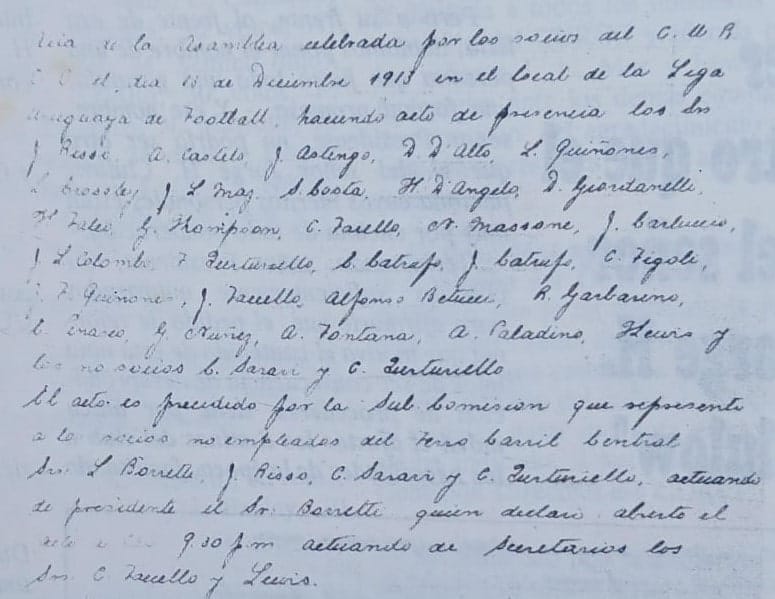 de la Asamblea celebrada por los socios del C. U. R.
C. C. el dia 13 de Diciembre 1913 en el local de la Liga
Uruguaya de Football, haciendo acto de presencia los Srs
J. Risso, A. Castelo, J. Astengo, D. D'Alto, L. Quiñones,
Crossley J. L. Maz S. Costa, H. D'Angelo, D. Giordanelli,
G. Thompson, C. Facello, N. Massone, J. Carluccio,
J. L. Colombo, F. Zurturiello, C. Catrufo, J. Catrufo, C. Figoli,
F. Quiñones, J. Facello, Alfonso Betucci, R. Garbarino,
G. Nuñez, A. Fontana, A. Paladino, Hewis y
los no socios C. Saravi y C. Zurturiello
El acto es precidido por la Sub. Comision que represente
a lo socios no empleados del Ferro Carril Central
Srs. L. Borretti, J. Risso, C. Saravi y C. Zurturiello, actuando
de presidente el Sr. Borretti quien declaró abierto el
acto 9.30 p.m actuando de Secretarios los
Srs. C. Facello y Lewis.